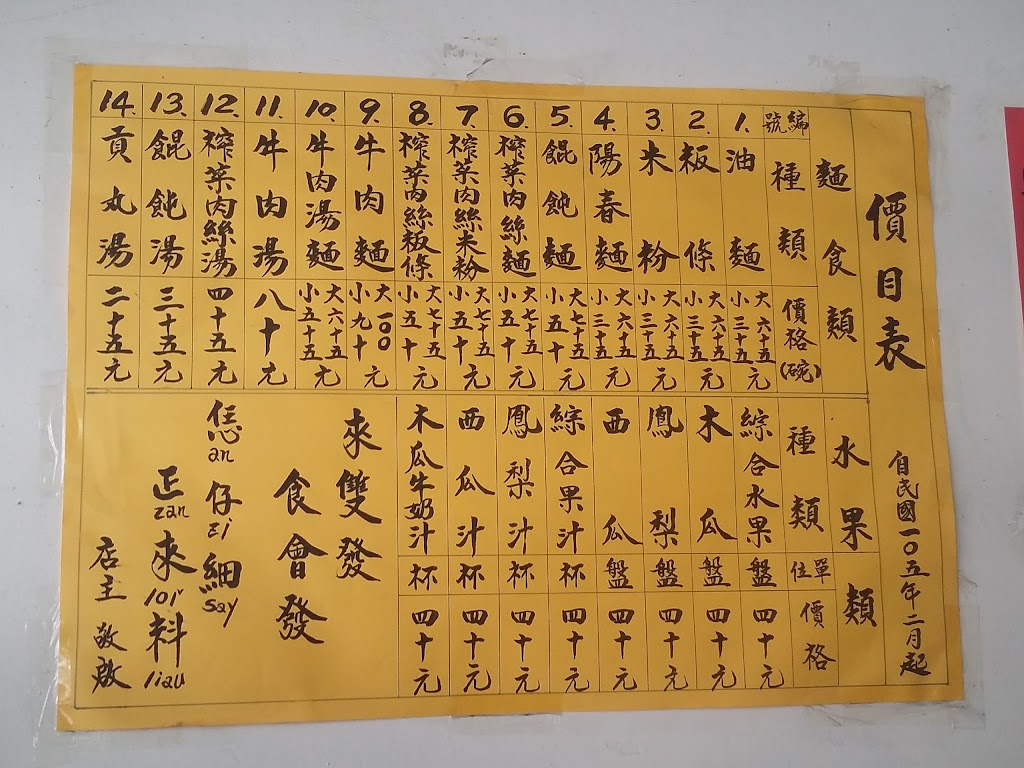 價目表
自民國一〇五年二月起
麵食類
編號
種類
價格(碗)
1.
油麵
大六十五
小三十五元
2.
粄條
大六十五
小三十五元
3.
米粉
大六十五
小三十五元
4.
陽春麵
大六十五
小三十五元
5.
餛飩麵
大七十五
小五十元
6.
榨菜肉絲麵
大七十五
小五十元
7.
榨菜肉絲米粉
大七十五
小五十元
8.
榨菜肉絲粄條
大七十五
小五十元
9.
牛肉麵
大一〇〇
小九十元
10.
牛肉湯麵
大六十五
小五十五元
11.
牛肉湯
八十元
12.
榨菜肉絲湯
四十五元
13.
餛飩湯
三十五元
14.
貢丸湯
二十五元
水果類
種類
單位
價格
綜合水果
盤
四十元
木瓜
盤
四十元
鳳梨
盤
四十元
西瓜
盤
四十元
綜合果汁
杯
四十元
鳳梨汁
杯
四十元
西瓜汁
杯
四十元
木瓜牛奶汁
杯
四十元
來雙發
食會發
恁仔細
an zii say
正來料
zan loi liau
店主 敬啟